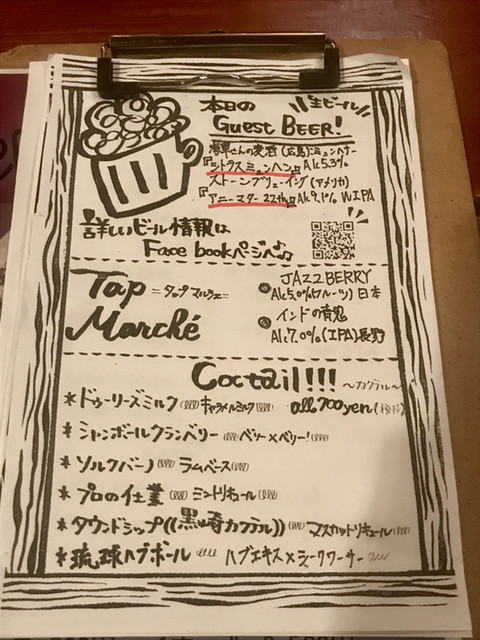 本日の
生ビール
Guest BEER!
海軍さんの麦酒(広島)ミュンヘナー
『シトラスミュンヘン』Alc5.3%
ストーンブリューイング(アメリカ)
『アニーマター22th』Alc9.1% WIPA
詳しいビール情報は
Face bookページへ♪
Tap =タップマルシェ=
Marché
JAZZBERRY
Alc5.0%(フルーツ)日本
インドの青鬼
Alc7.0%(IPA)長野
Coctail!!! ~カクテル~
*ドゥーリーズミルク キャラメルミルク all 700yen
*シャンボールクランベリー ベリー×ベリー!
*ソルクバーノ ラムベース
*プロの仕業 ミントリキュール
*タウンドシップ((黒崎カクテル)) マスカットリキュール
*琉球ハブボール ハブエキス×シークワーサー